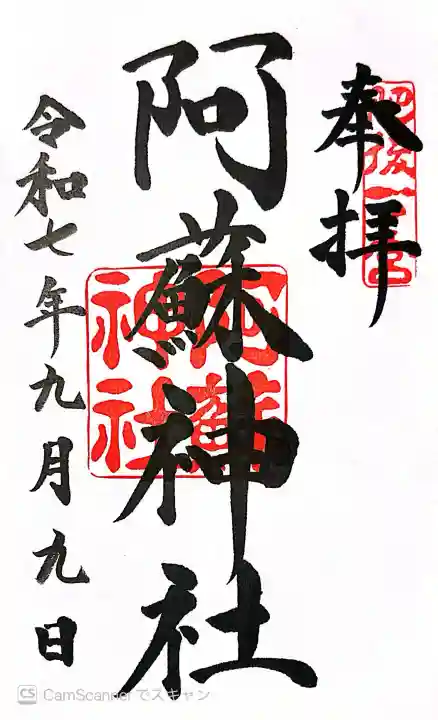 奉拝
肥後一宮
阿蘇神社
阿蘇神社
令和七年九月九日
CS CamScanner でスキャン